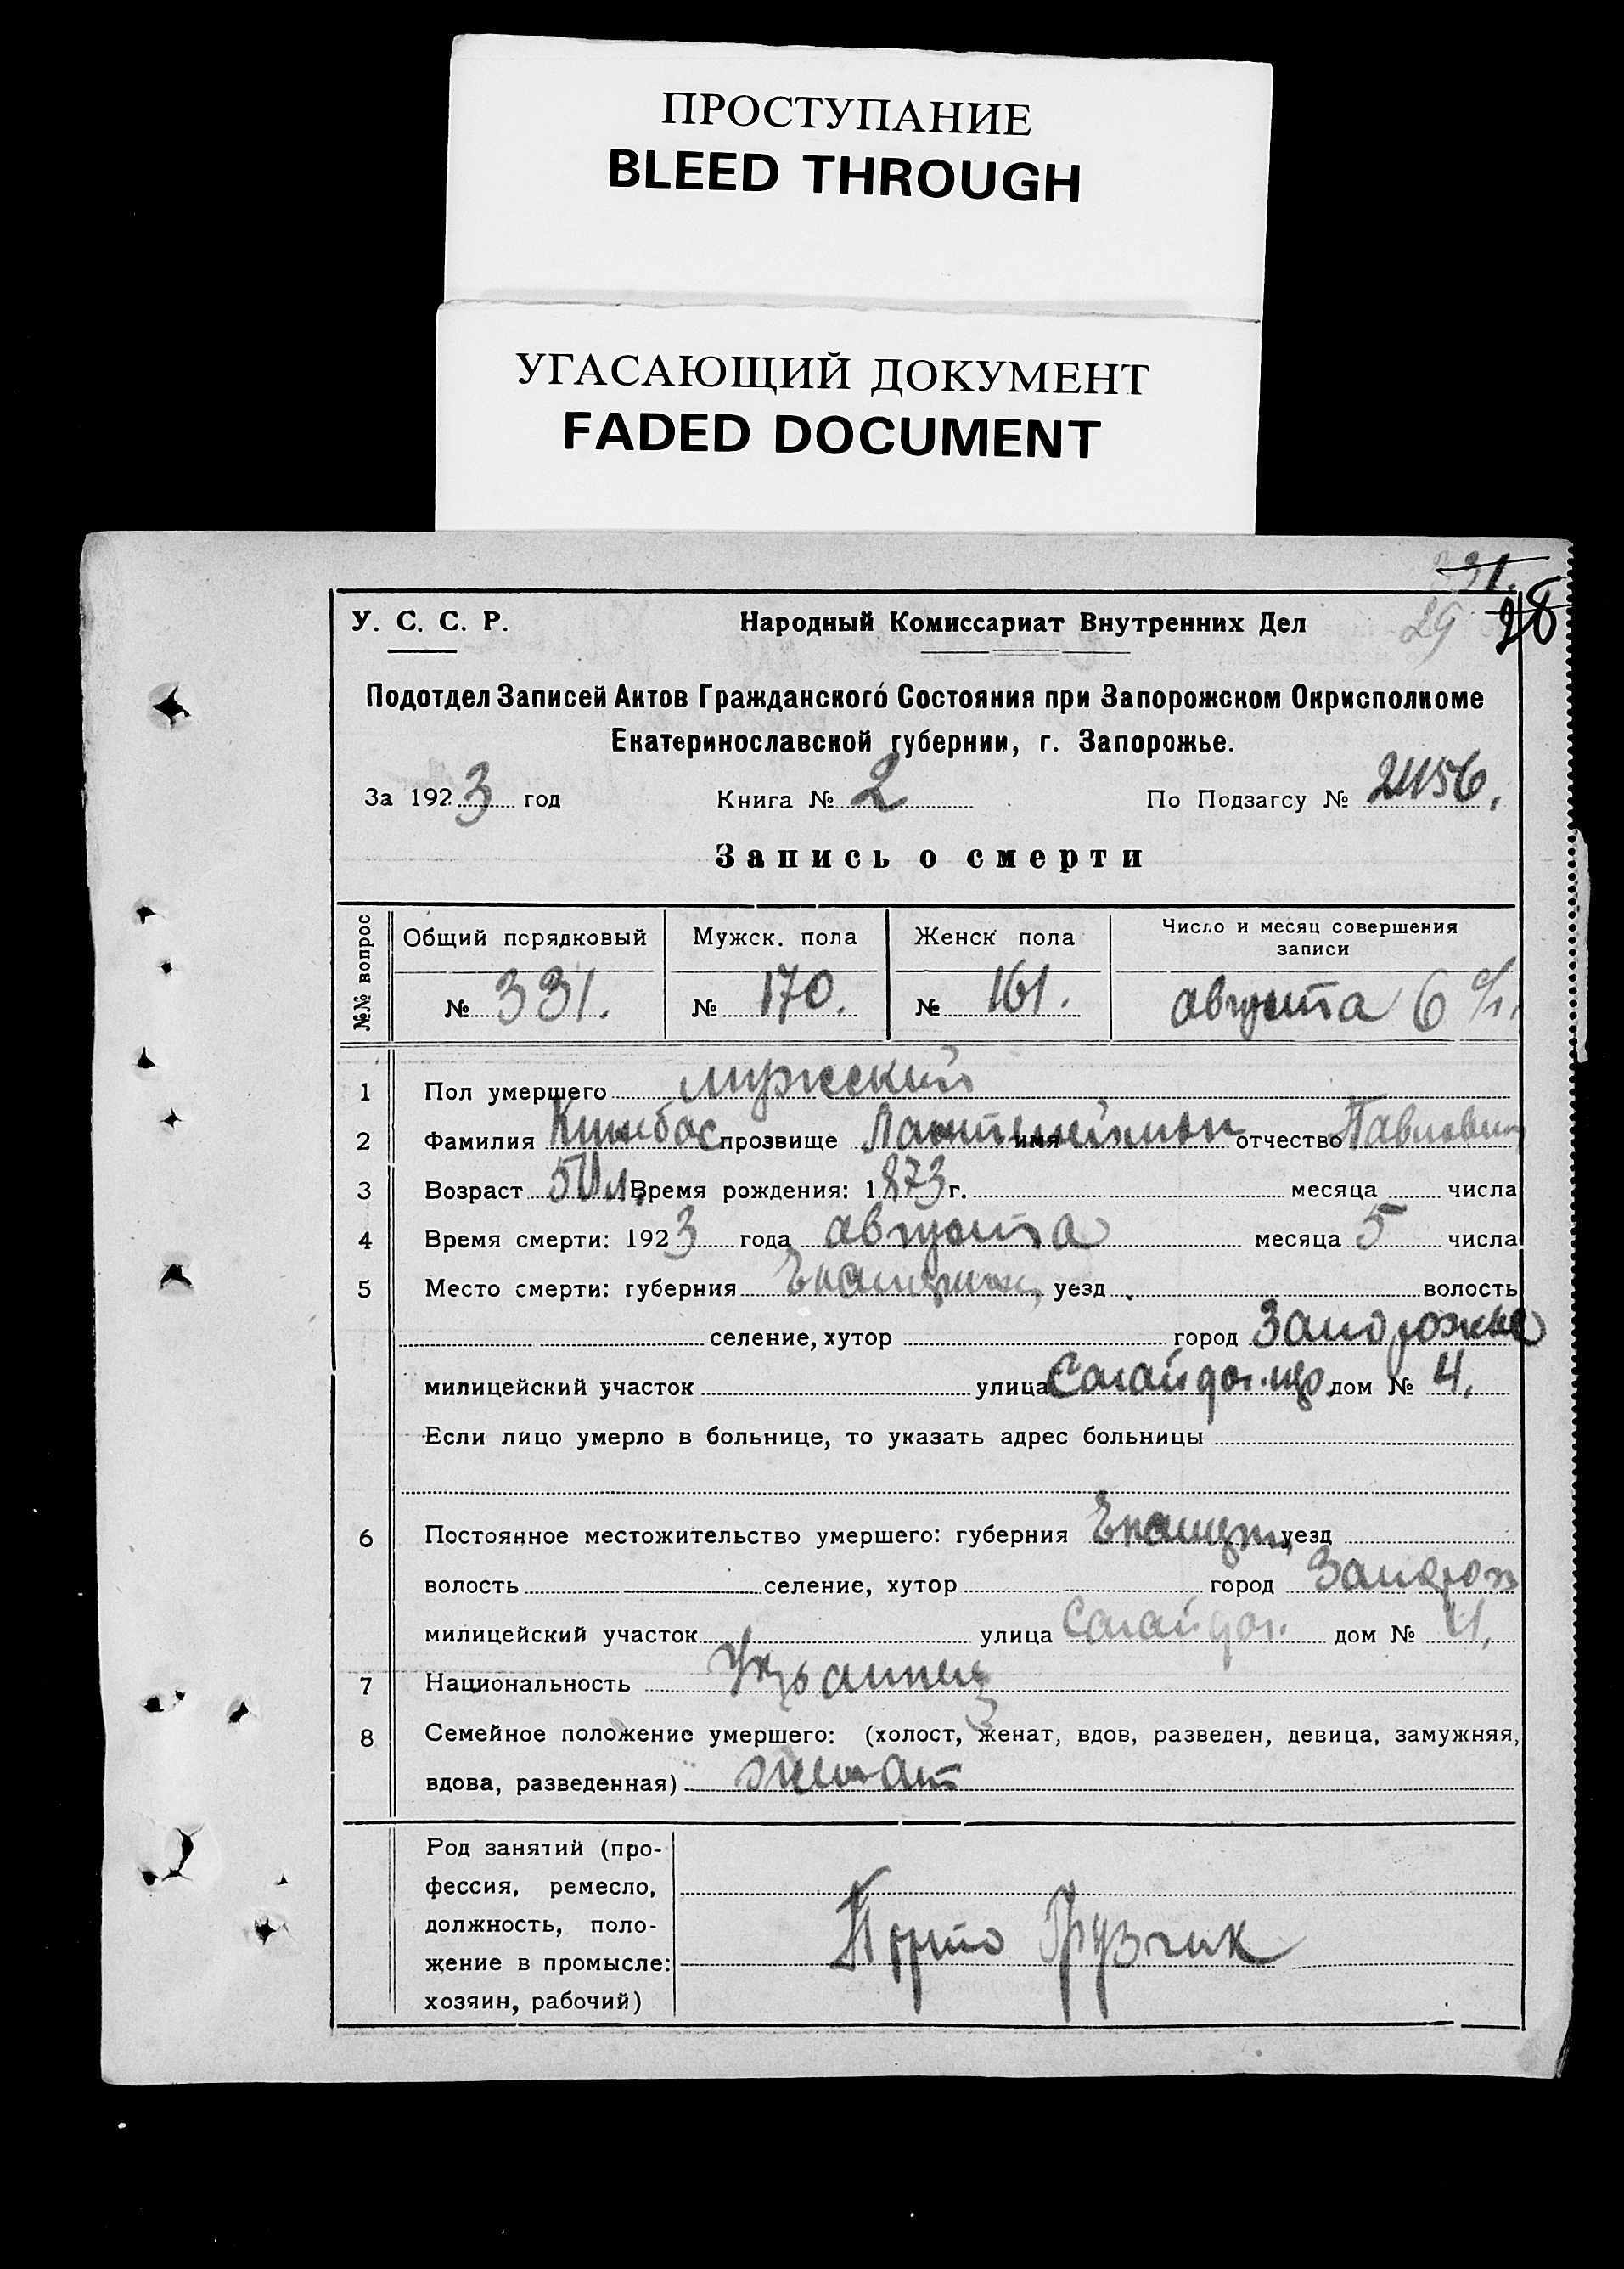 ПРОСТУПАНИЕ
BLEED THROUGH
УГАСАЮЩИЙ ДОКУМЕНТ
FADED DOCUMENT
331.
29 28
У. С. С. Р. Народный Комиссариат Внутренних Дел
Подотдел Записей Актов Гражданского Состояния при Запорожском Окрисполкоме
Екатеринославской губернии, г. Запорожье.
За 1923 год Книга № 2 По Подзагсу №
Запись о смерти
№№ вопрос Общий порядковый Мужск. пола Женск пола Число и месяц совершения записи
№ 331. № 170. № 161. августа 6
1 Пол умершего мужеский
2 Фамилия прозвище имя отчество Павлович
3 Возраст 50 л. Время рождения: 1873 г. месяца числа
4 Время смерти: 1923 года августа месяца 5 числа
5 Место смерти: губерния уезд волость
селение, хутор город Запорожье
милицейский участок улица дом № 4.
Если лицо умерло в больнице, то указать адрес больницы
6 Постоянное местожительство умершего: губерния уезд
волость селение, хутор город Запорож
милицейский участок улица Сагайдог. дом № 4.
7 Национальность
8 Семейное положение умершего: (холост, женат, вдов, разведен, девица, замужняя,
вдова, разведенная) женат
Род занятий (про-
фессия, ремесло,
должность, поло-
жение в промысле:
хозяин, рабочий)
Грузчик